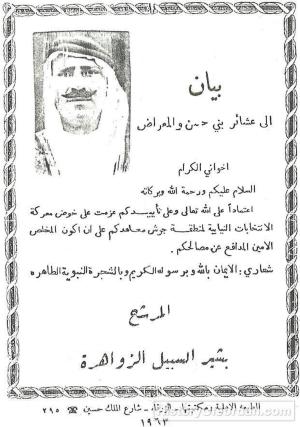 بيان
الى عشائر بني حسن والمعراض
اخواني الكرام
السلام عليكم ورحمة الله وبركاته
اعتماداً على الله تعالى وعلى تأييدكم عزمت على خوض معركة
الانتخابات النيابية لمنطقة جرش معاهدكم على ان اكون المخلص
الامين المدافع عن مصالحكم .
شعاري : الايمان بالله وبرسوله الكريم وبالشجرة النبوية الطاهره
المرشح
بشير السبيل الزواهرة
شارع الملك حسين ☎ ٢٩٥
١٩٦٣
HistoryOfJordan.com